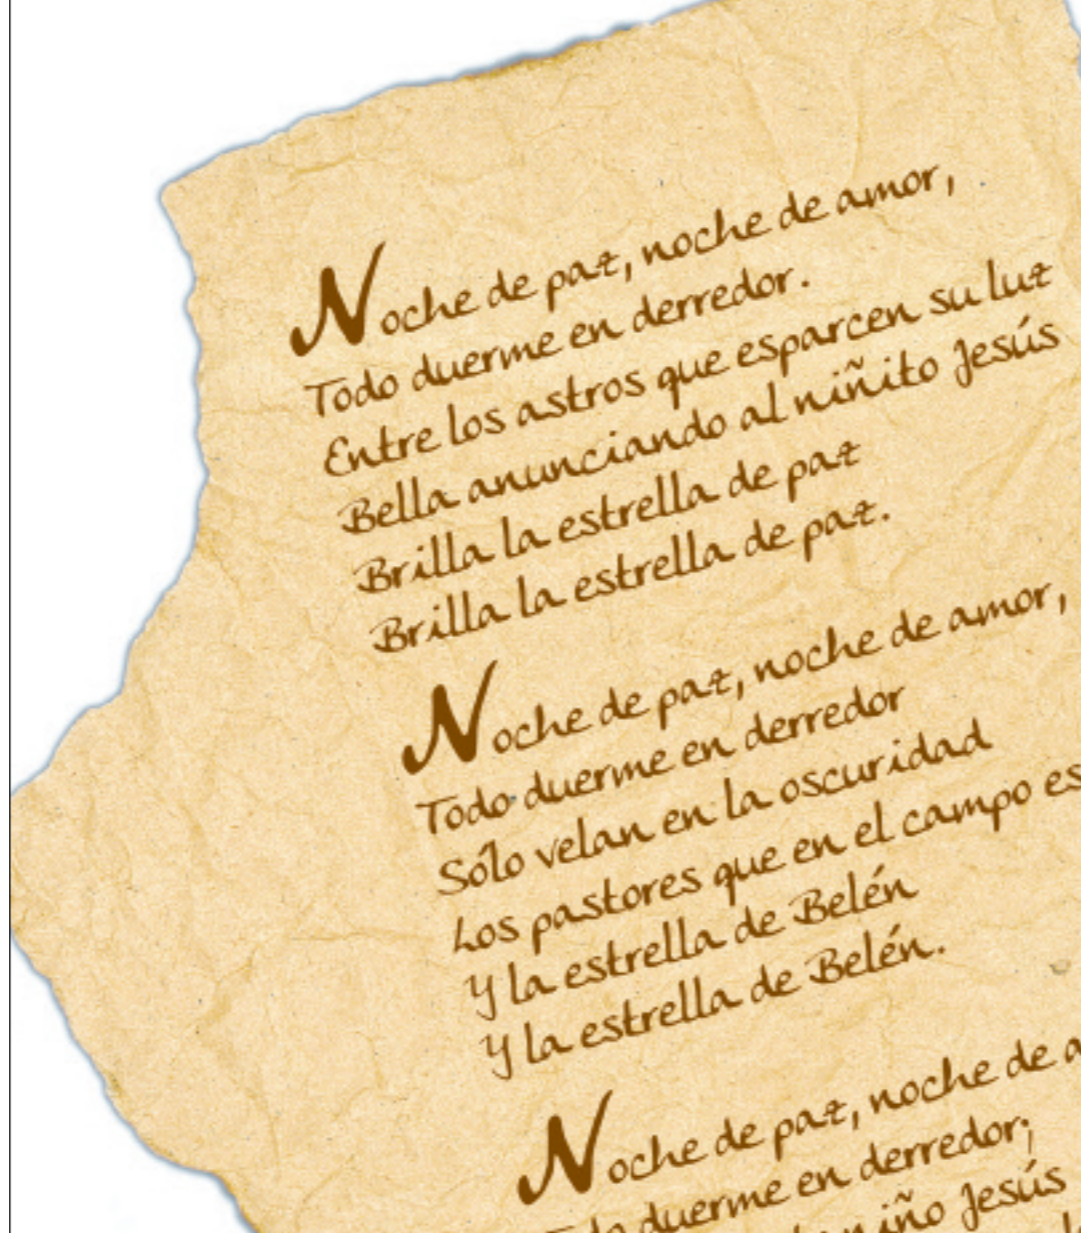 Noche de paz, noche de amor,
Todo duerme en derredor.
Entre los astros que esparcen su luz
Bella anunciando al niñito Jesús
Brilla la estrella de paz
Brilla la estrella de paz.
Noche de paz, noche de amor,
Todo duerme en derredor
Sólo velan en la oscuridad
Los pastores que en el campo
Y la estrella de Belén
Y la estrella de Belén.
Noche de paz, noche de
duerme en derredor;
niño Jesús